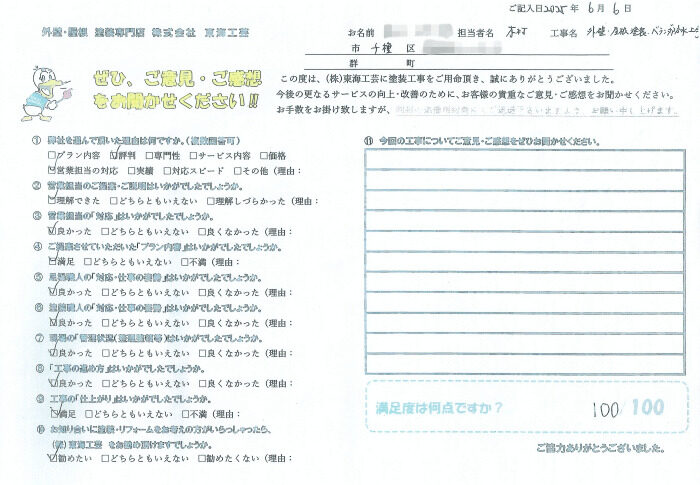 ご記入日2025年 6月 6日
外壁・屋根 塗装専門店 株式会社 東海工芸
お名前 担当者名 木村 工事名 外壁・屋根塗装・ベランダ防水工事
市 千種 区
群 町
ぜひ、ご意見・ご感想
をお聞かせください!!
この度は、(株)東海工芸に塗装工事をご用命頂き、誠にありがとうございました。
今後の更なるサービスの向上・改善のために、お客様の貴重なご意見・ご感想をお聞かせください。
お手数をお掛け致しますが、
① 弊社を選んで頂いた理由は何ですか。(複数回答可)
□プラン内容 ☑評判 □専門性 □サービス内容 □価格
☑営業担当の対応 □実績 □対応スピード □その他(理由:
② 営業担当のご提案・ご説明はいかがでしたでしょうか。
☑理解できた □どちらともいえない □理解しづらかった(理由:
③ 営業担当の「対応」はいかがでしたでしょうか。
☑良かった □どちらともいえない □良くなかった(理由:
④ ご提案させていただいた「プラン内容」はいかがでしたでしょうか。
☑満足 □どちらともいえない □不満(理由:
⑤ 足場職人の「対応・仕事の姿勢」はいかがでしたでしょうか。
☑良かった □どちらともいえない □良くなかった(理由:
⑥ 塗装職人の「対応・仕事の姿勢」はいかがでしたでしょうか。
☑良かった □どちらともいえない □良くなかった(理由:
⑦ 現場の「管理状況(整理整頓等)」はいかがでしたでしょうか。
☑良かった □どちらともいえない □良くなかった(理由:
⑧「工事の進め方」はいかがでしたでしょうか。
☑良かった □どちらともいえない □良くなかった(理由:
⑨ 工事の「仕上がり」はいかがでしたでしょうか。
☑満足 □どちらともいえない □不満(理由:
⑩ お知り合いに塗装・リフォームをお考えの方がいらっしゃったら、
(株)東海工芸 をお勧め頂けますでしょうか。
☑勧めたい □どちらともいえない □勧めたくない(理由:
⑪ 今回の工事についてご意見・ご感想をぜひお聞かせください。
満足度は何点ですか? 100/100
ご協力ありがとうございました。